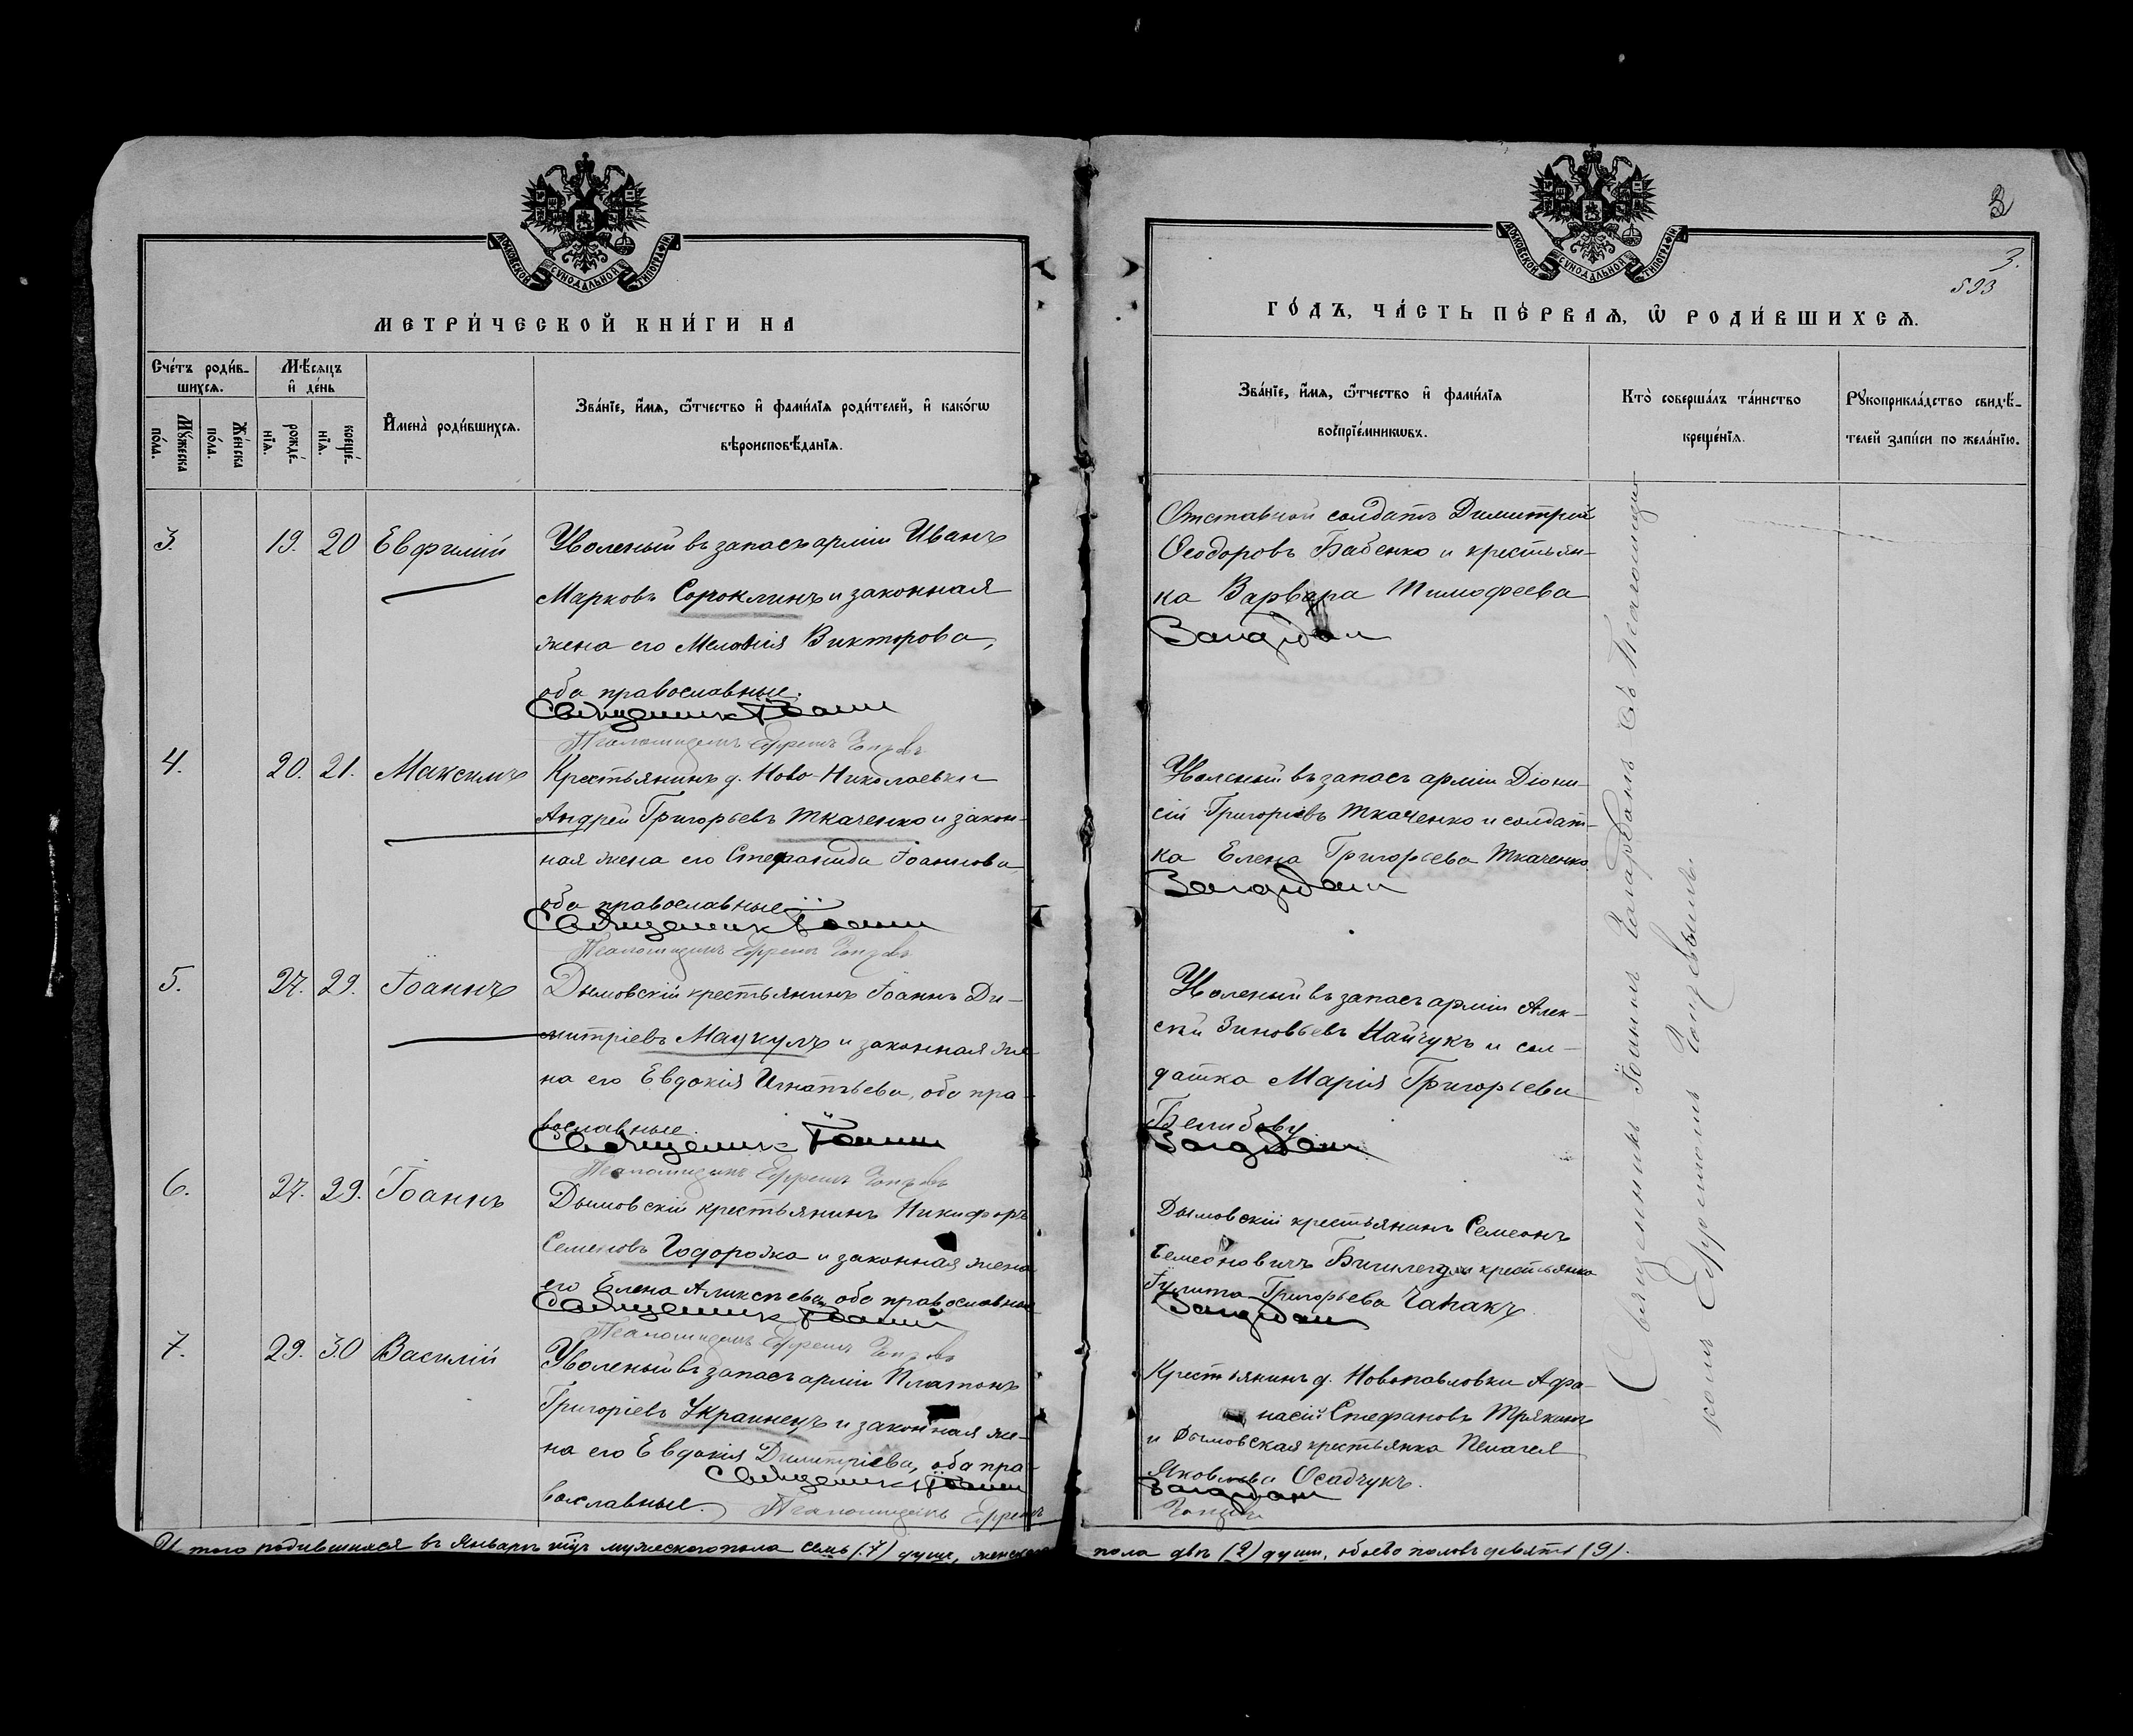 МОСКОВСКОЙ СѴНОДАЛЬНОЙ ТИПОГРАФІИ
МЕТРИ́ЧЕСКОЙ КНИ́ГИ НА
Сче́тъ роди́в-
шихсѧ.
Мꙋ́жеска
по́ла.
Же́нска
по́ла.
Мѣ́сѧцъ
и҆ де́нь
рожде́-
нїѧ.
креще́-
нїѧ.
И҆мена̀ роди́вшихсѧ.
Зва́нїе, и҆́мѧ, ѻ҆́тчество и҆ фами́лїѧ роди́телей, и҆ како́гѡ
вѣроисповѣ́данїѧ.
3. 19. 20 Евфимій
Уволеный въ запасъ арміи Иванъ
Марковъ Сороклинъ и законная
жена его Меланія Викторова,
оба православные.
Священникъ Іоаннъ
Псаломщикъ Ефремъ
4. 20. 21. Максимъ
Крестьянинъ д. Ново-Николаевки
Андрей Григорьевъ Ткаченко и закон-
ная жена его Стефанида Іоаннова
оба православные
Священникъ Іоаннъ
Псаломщикъ Ефремъ
5. 27. 29. Іоаннъ
Дымовскій крестьянинъ Іоаннъ Ди-
митріевъ Мацкулъ и законная же-
на его Евдокія Игнатьева, оба пра-
вославные.
Священникъ Іоаннъ
Псаломщикъ Ефремъ
6. 27. 29. Іоаннъ
Дымовскій крестьянинъ Никифоръ
Семеновъ Годорожа и законная жена
его Елена Аликсѣева, оба православные
Священникъ Іоаннъ
Псаломщикъ Ефремъ
7. 29. 30 Василій
Уволеный въ запасъ арміи Платонъ
Григоріевъ Украинецъ и законная же-
на его Евдокія Димитріева, оба пра-
Священникъ Іоаннъ
вославные. Псаломщикъ Ефремъ
Итого родившихся въ Январѣ м-цѣ мужескаго пола семь (7) душъ, женскаго
МОСКОВСКОЙ СѴНОДАЛЬНОЙ ТИПОГРАФІИ
3
3.
593
ГО́ДЪ, ЧА́СТЬ ПЕ́РВАѦ, Ѡ҆ РОДИ́ВШИХСѦ.
Зва́нїе, и҆́мѧ, ѻ҆́тчество и҆ фами́лїѧ
воспрїе́мникѡвъ.
Кто̀ соверша́лъ та́инство
креще́нїѧ.
Рꙋкоприкла́дство свидѣ́-
телей за́писи по жела́нїю.
Отставной солдатъ Димитрій
Ѳеодоровъ Бабенко и крестьян-
ка Варвара Тимофеева
Уволеный въ запасъ арміи Діони-
сій Григоріевъ Ткаченко и солдат-
ка Елена Григорьева Ткаченко.
Уволеный въ запасъ арміи Алек-
сѣй Зиновьевъ Найчукъ и сол-
датка Марія Григорьева
Дымовскій крестьянинъ Семеонъ
Семеоновичъ и крестьянка
Григорьева Чапакъ.
Крестьянинъ д. Новопавловки Афа-
насій Стефановъ Трякинъ
и Дымовская крестьянка Пелагея
Яковлева Осадчукъ.
Священникъ Іоаннъ съ Псаломщи-
комъ Ефремомъ
пола двѣ (2) души, обоего половъ девять (9).